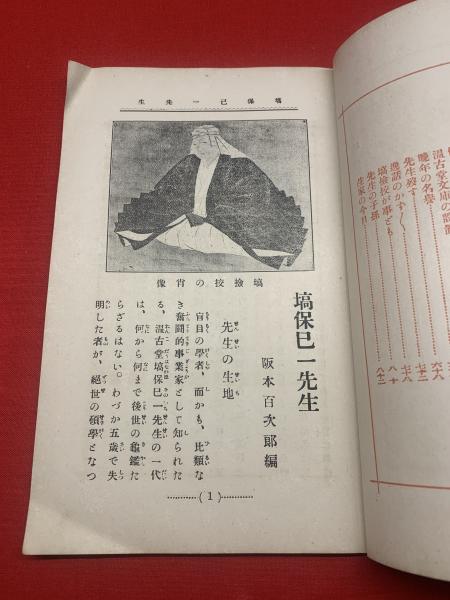 塙保己一先生
塙撿挍の肖像
塙保已一先生
阪本百次郎編
先生の生地
盲目の學者、而かも、比類な
き奮鬪的事業家として知られた
る、温古堂塙保巳一先生の一代
は、何から何まで後世の龜鑑た
らざるはない。わづか五歳で失
明した者が、絕世の碩學となつ
(1)
温古堂文庫の
晩年の名譽
先生歿す
逸話のかずかず
塙撿挍が事ども
先生の子孫
生家の今日
六六
七三
七八
八十
八三